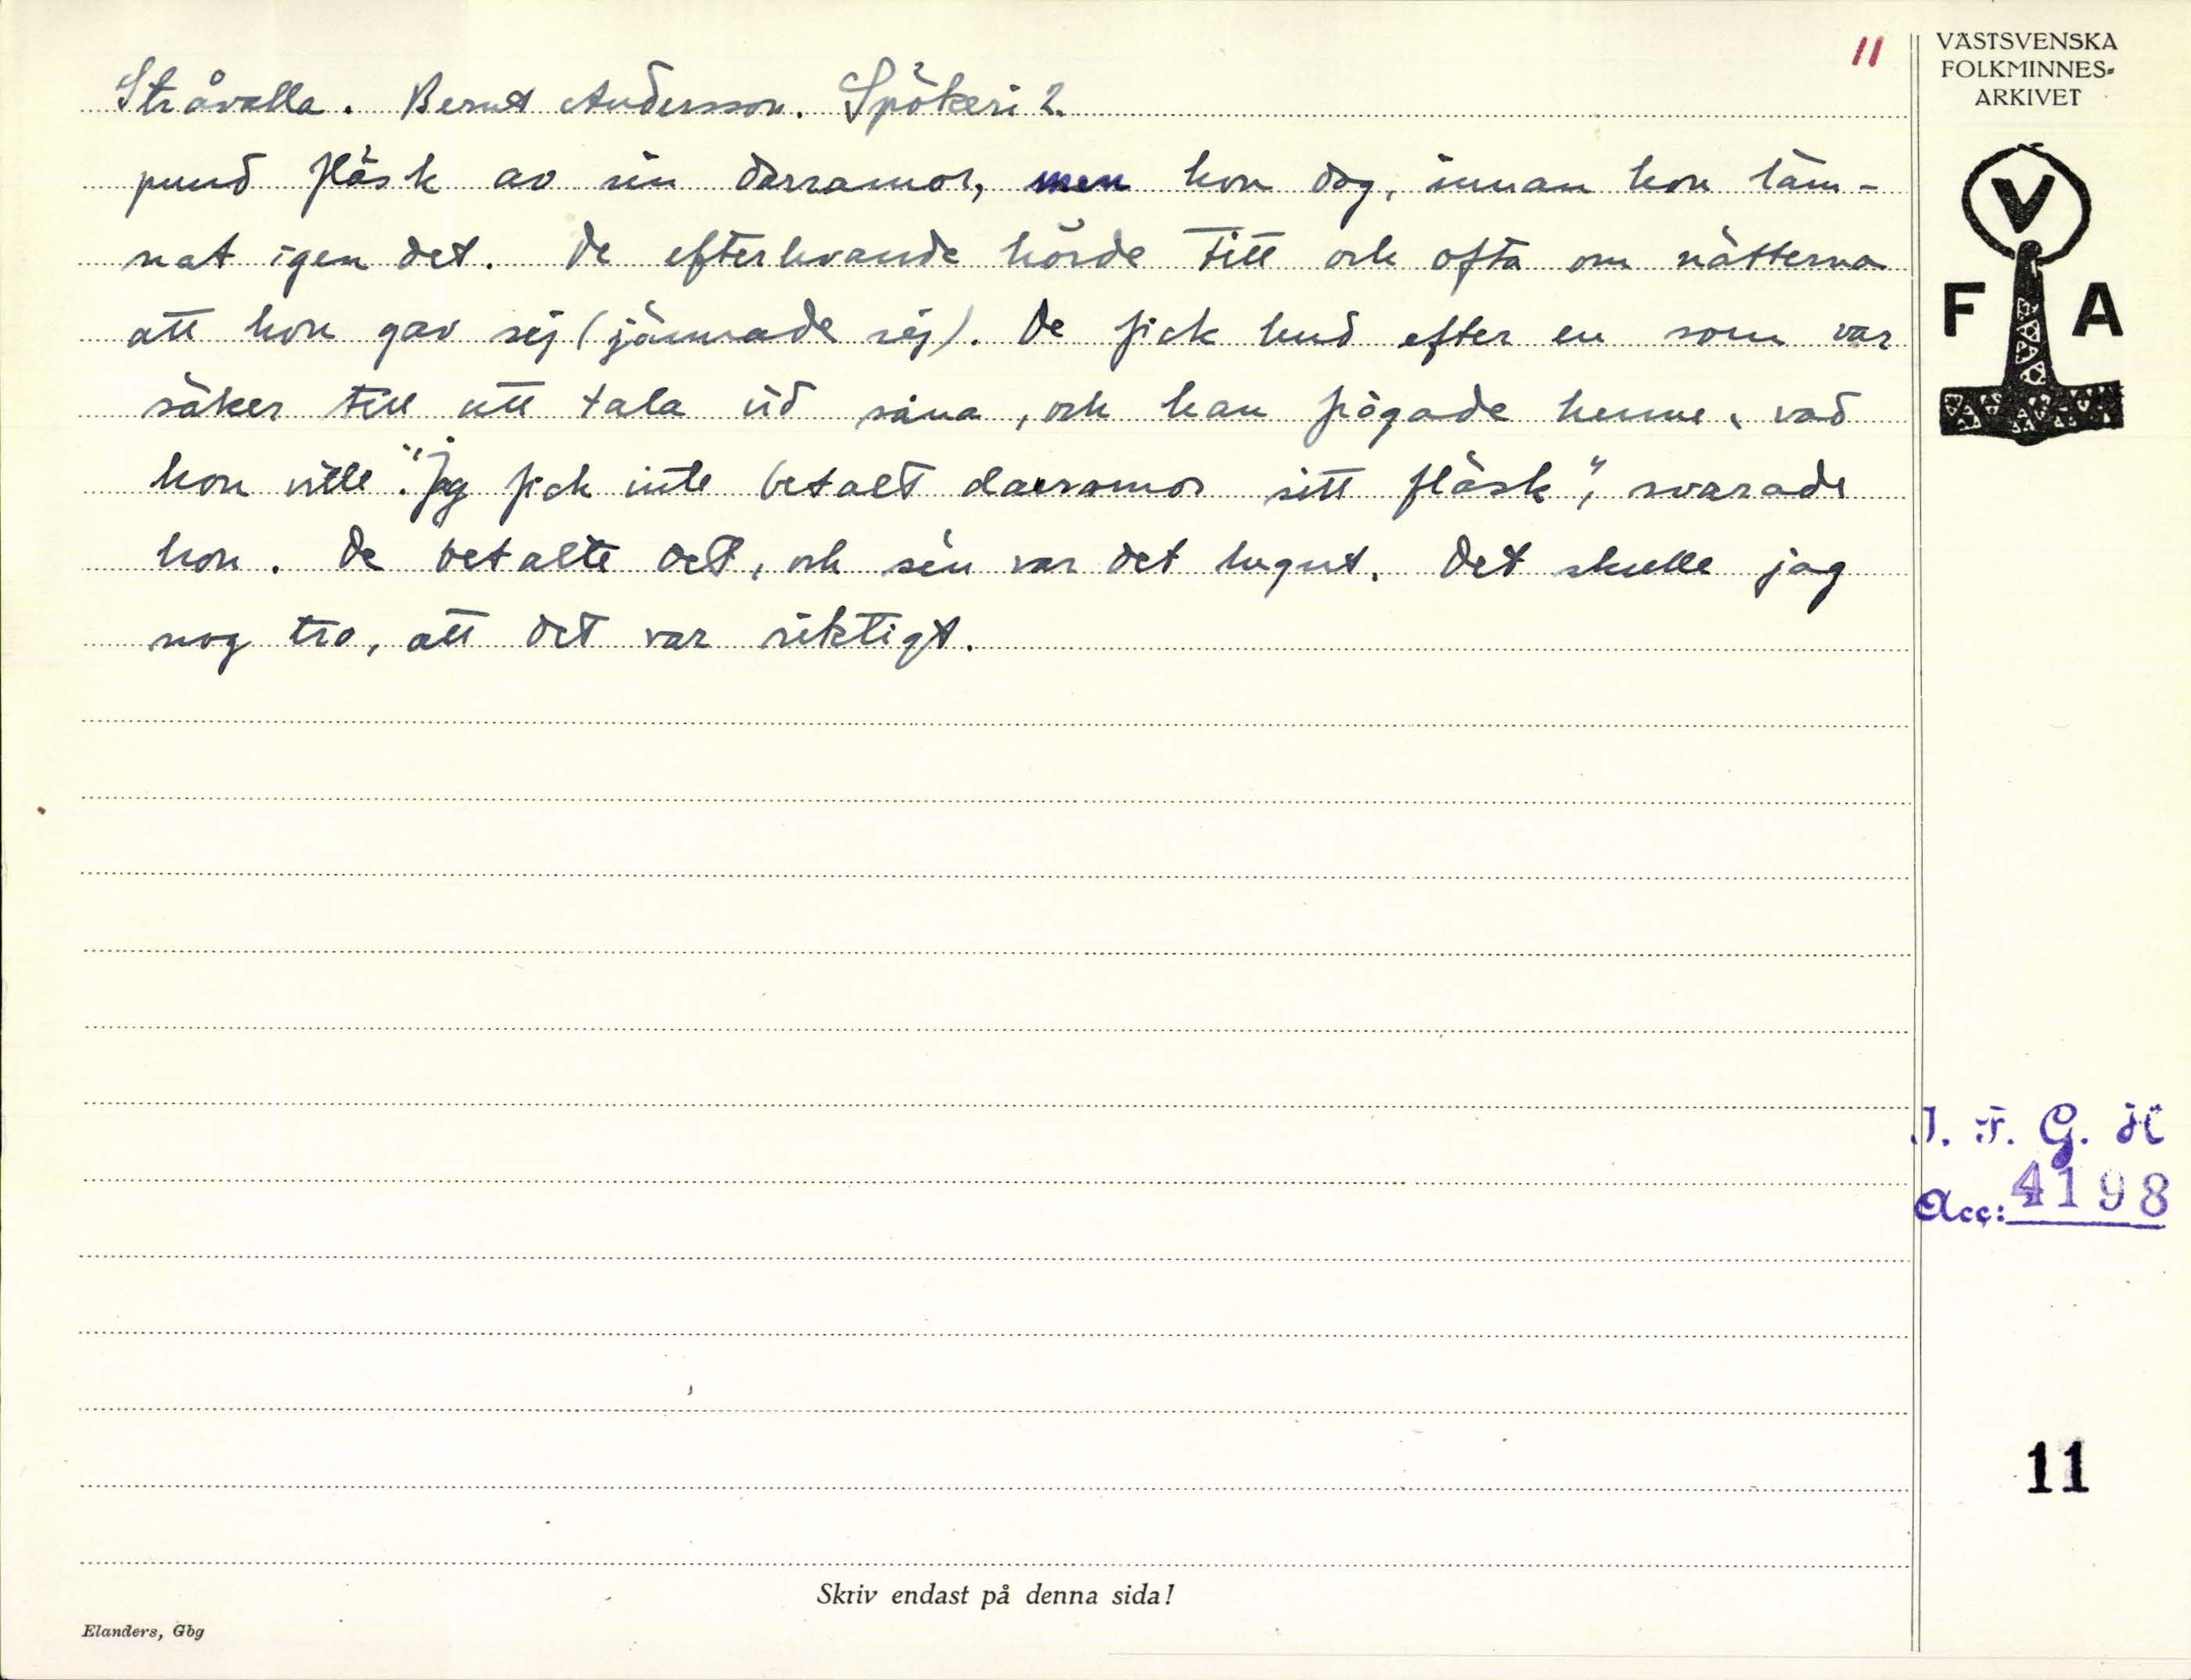 11
Stråvalla. Bernt Andersson. Spökeri 2.
pund fläsk av sin darramor, men hon dog, innan hon läm-
nat igen det. De efterlevande hörde titt och ofta om nätterna
att hon gav sej (jämrade sej). De fick bud efter en som var
säker till att tala vid såna, och han frågade henne, vad
hon ville. "Jag fick inte betalt darramor sitt fläsk", svarade
hon. De betalte det, och sen var det lugnt. Det skulle jag
nog tro, att det var riktigt.
VÄSTSVENSKA
FOLKMINNES-
ARKIVET
V
F A
I. F. G. H
Acc: 4198
11
Skriv endast på denna sida!
Elanders, Gbg